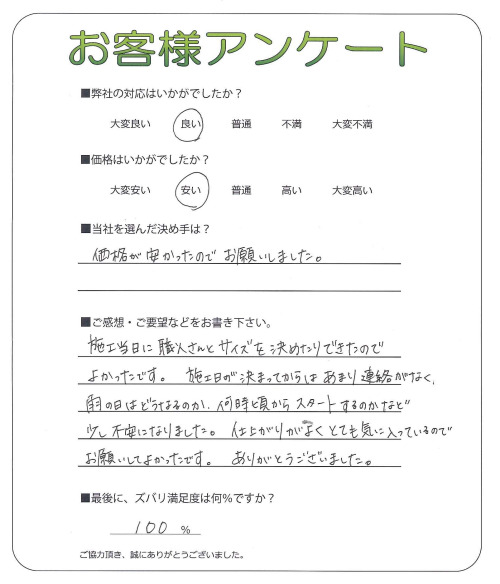 お客様アンケート
■弊社の対応はいかがでしたか？
大変良い 良い 普通 不満 大変不満
■価格はいかがでしたか？
大変安い 安い 普通 高い 大変高い
■当社を選んだ決め手は？
価格が安かったのでお願いしました。
■ご感想・ご要望などをお書き下さい。
施工当日に職人さんとサイズを決めたりできたので
よかったです。 施工日が決まってからはあまり連絡がなく、
雨の日はどうなるのか、何時頃からスタートするのかなど
少し不安になりました。 仕上がりがよくとても気に入っているので
お願いしてよかったです。 ありがとうございました。
■最後に、ズバリ満足度は何%ですか？
100 %
ご協力頂き、誠にありがとうございました。